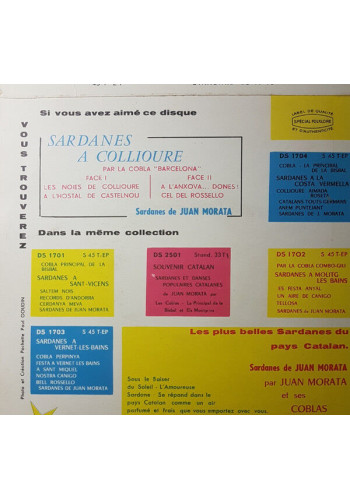 LABEL DE QUALITÉ
SPÉCIAL FOLKLORE
ET D'AUTHENTICITÉ
Si vous avez aimé ce disque
VOUS TROUVEREZ
SARDANES
A COLLIOURE
PAR LA COBLA "BARCELONA"
FACE I
LES NOIES DE COLLIOURE
A L'HOSTAL DE CASTELNOU
FACE II
A L'ANXOVA... DONES!
CEL DEL ROSSELLO
Sardanes de JUAN MORATA
DS 1704 S 45 T-EP
COBLA LA PRINCIPAL
DE LA BISBAL
SARDANES A LA
COSTA VERMELLA
COLLIOURE AIMADA
CATALANS TOUTS GERMANS
ANEM PUNTEJANT
SARDANES DE J. MORATA
Dans la même collection
DS 1701 S 45 T-EP
COBLA PRINCIPAL DE LA
BISBAL
SARDANES A
SANT-VICENS
SALTEM NOIS
RECORDS D'ANDORRA
CERDANYA MEVA
SARDANES DE JUAN MORATA
DS 2501 Stand. 33 t
SOUVENIR CATALAN
SARDANES ET DANSES
POPULAIRES CATALANES
de JUAN MORATA par
Les Coblas - La Principal de la
DS 1702 S 45 T-EP
PAR LA COBLA COMBO-GILI
SARDANES A MOLITG
LES BAINS
ES FESTA ANYAL
UN AIRE DE CANIGO
SARDANES DE JUAN MORATA
DS 1703 S 45 T-EP
SARDANES A
VERNET-LES BAINS
COBLA PERPINYA
FESTA A VERNET LES BAINS
A SANT MIQUEL
NOSTRA CANIGO
BELL ROSSELLO
SARDANES DE JUAN MORATA
Les plus belles Sardanes du
pays Catalan.
Sardanes de JUAN MORATA
par JUAN MORATA
et ses
COBLAS
Sous le Baiser
du Soleil: L'Amoureuse
Sardane Se répand dans le
pays Catalan comme un air
parfumé et frais que vous emportez avec vous.
Photo et Création Pochette Paul